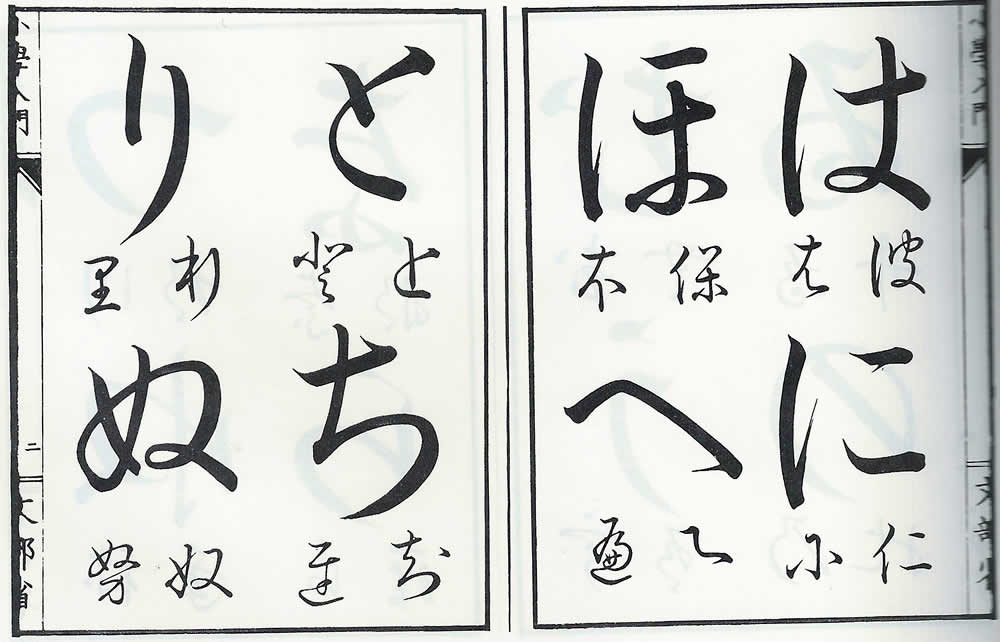 小學入門
文部省
は
波
に
仁
尓
ほ
保
本
へ
遍
と
登
ち
知
り
利
里
ぬ
奴
努
小學入門
二
文部省